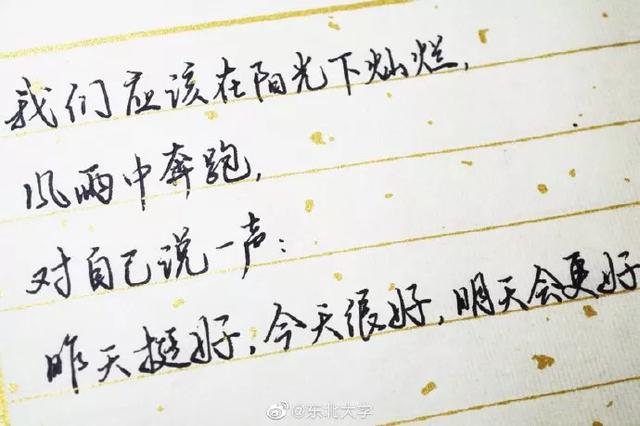 我们应该在阳光下灿烂，
风雨中奔跑，
对自己说一声：
昨天挺好，今天很好，明天会更好
@东北大学